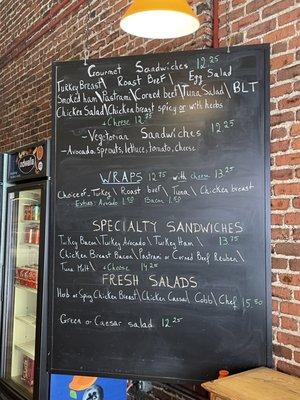 Gourmet Sandwiches 12.25
Turkey Breast\ Roast Beef\ Egg Salad
Smoked ham\Pastrami\Corned beef\Tuna Salad\BLT
Chicken Salad\Chicken breast spicy or with herbs
+ Cheese 12.75
-Vegetarian Sandwiches 12.25
-Avocado, sprouts, lettuce, tomato, cheese
WRAPS 12.75 with cheese 13.25
Choice of - Turkey\ Roast beef\ Tuna\ Chicken breast
Extras: Avocado 1.50 Bacon 1.50
SPECIALTY SANDWICHES
Turkey Bacon\Turkey Avocado\Turkey Ham\ 13.75
Chicken Breast Bacon\Pastrami or Corned Beef Reuben\
Tuna Melt\ +Cheese 14.25
FRESH SALADS
Herb or Spicy Chicken Breast\Chicken Caesar\Cobb\Chef 15.50
Green or Caesar salad 12.25